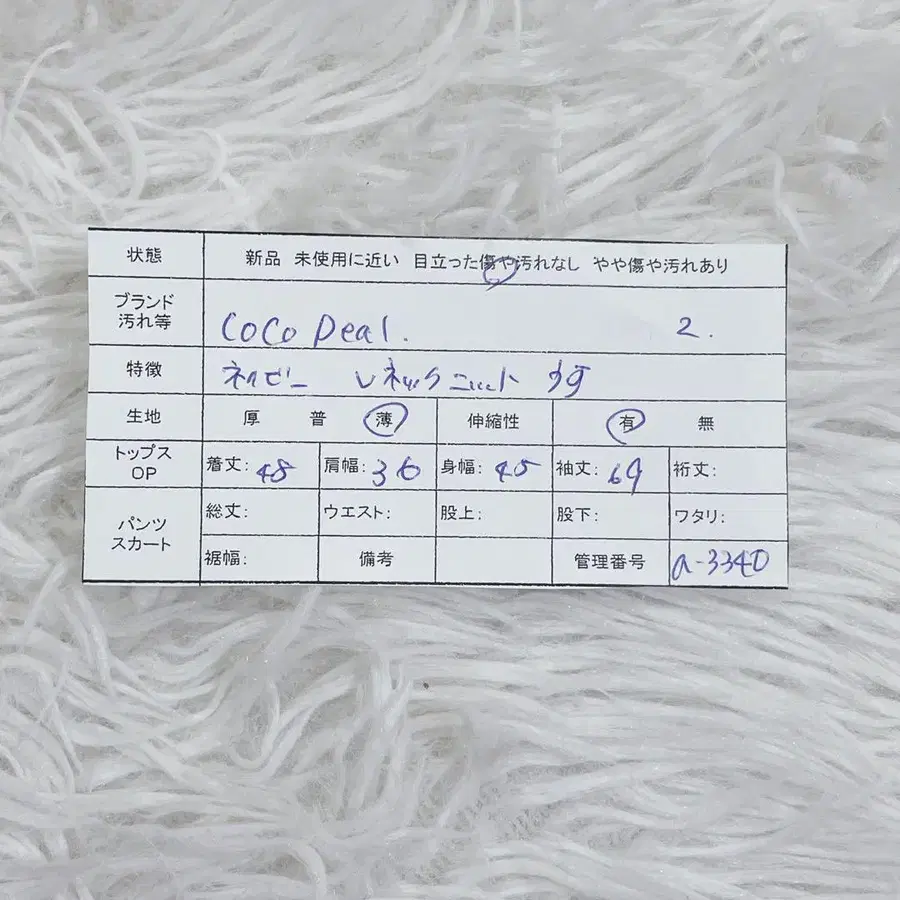 状態 新品 未使用に近い 目立った傷や汚れなし やや傷や汚れあり
ブランド
汚れ等 CoCo Deal. 2.
特徴 ネイビー Vネックニット
生地 厚 普 薄 伸縮性 有 無
トップス
OP 着丈: 48 肩幅: 36 身幅: 45 袖丈: 69 裄丈:
パンツ
スカート 総丈: ウエスト: 股上: 股下: ワタリ:
裾幅: 備考 管理番号 a-3340